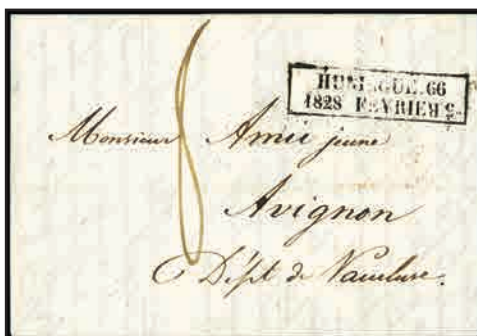 HUNINGUE. 66
1828 FEVRIER
8
Monsieur Amic jeune
Avignon
Dépt de Vaucluse.